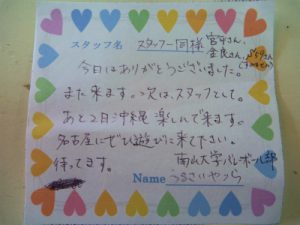 スタッフ名 スタッフ一同様 宮平さん、
金良さん、
今日はありがとうございました。
また来ます。次は、スタッフとして。
あと2日沖縄 楽しんで来ます。
名古屋にぜひ遊びに来て下さい。
待ってます。 南山大学バレーボール部
Name うるさいやつら